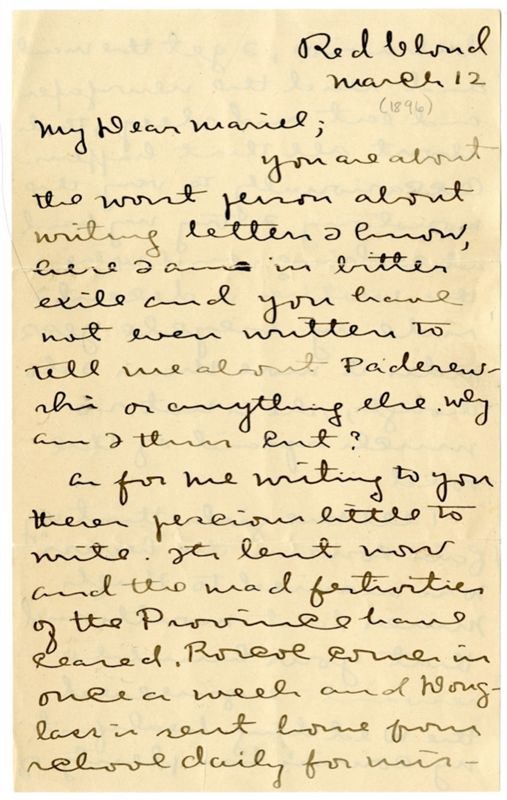 Red Cloud
March 12
(1896)
My Dear Mariel;
You are about
the worst person about
writing letters I know,
here I am in bitter
exile and you have
not even written to
tell me about Paderew-
ski or anything else. Why
am I thus cut?
As for me writing to you
theres precious little to
write. Its lent now
and the mad festivities
of the Province have
ceased. Roscoe comes in
once a week and Doug-
lass is sent home from
school daily for mis-